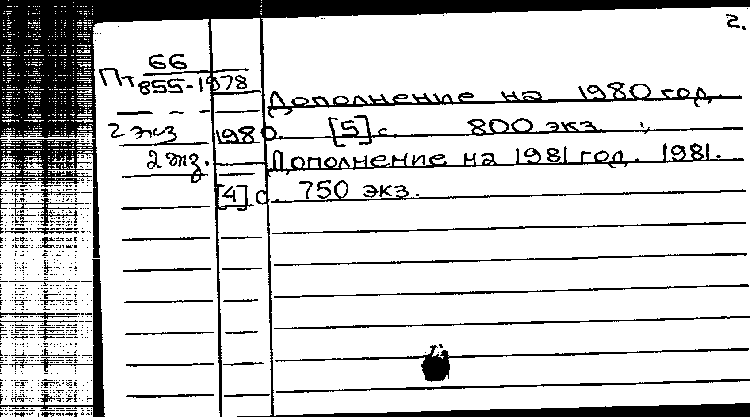 2.
Пт 66
855-1978
Дополнение на 1980 год.
2 экз 1980. [5] с. 800 экз. ;
2 экз. Дополнение на 1981 год. 1981.
[4] с. 750 экз.